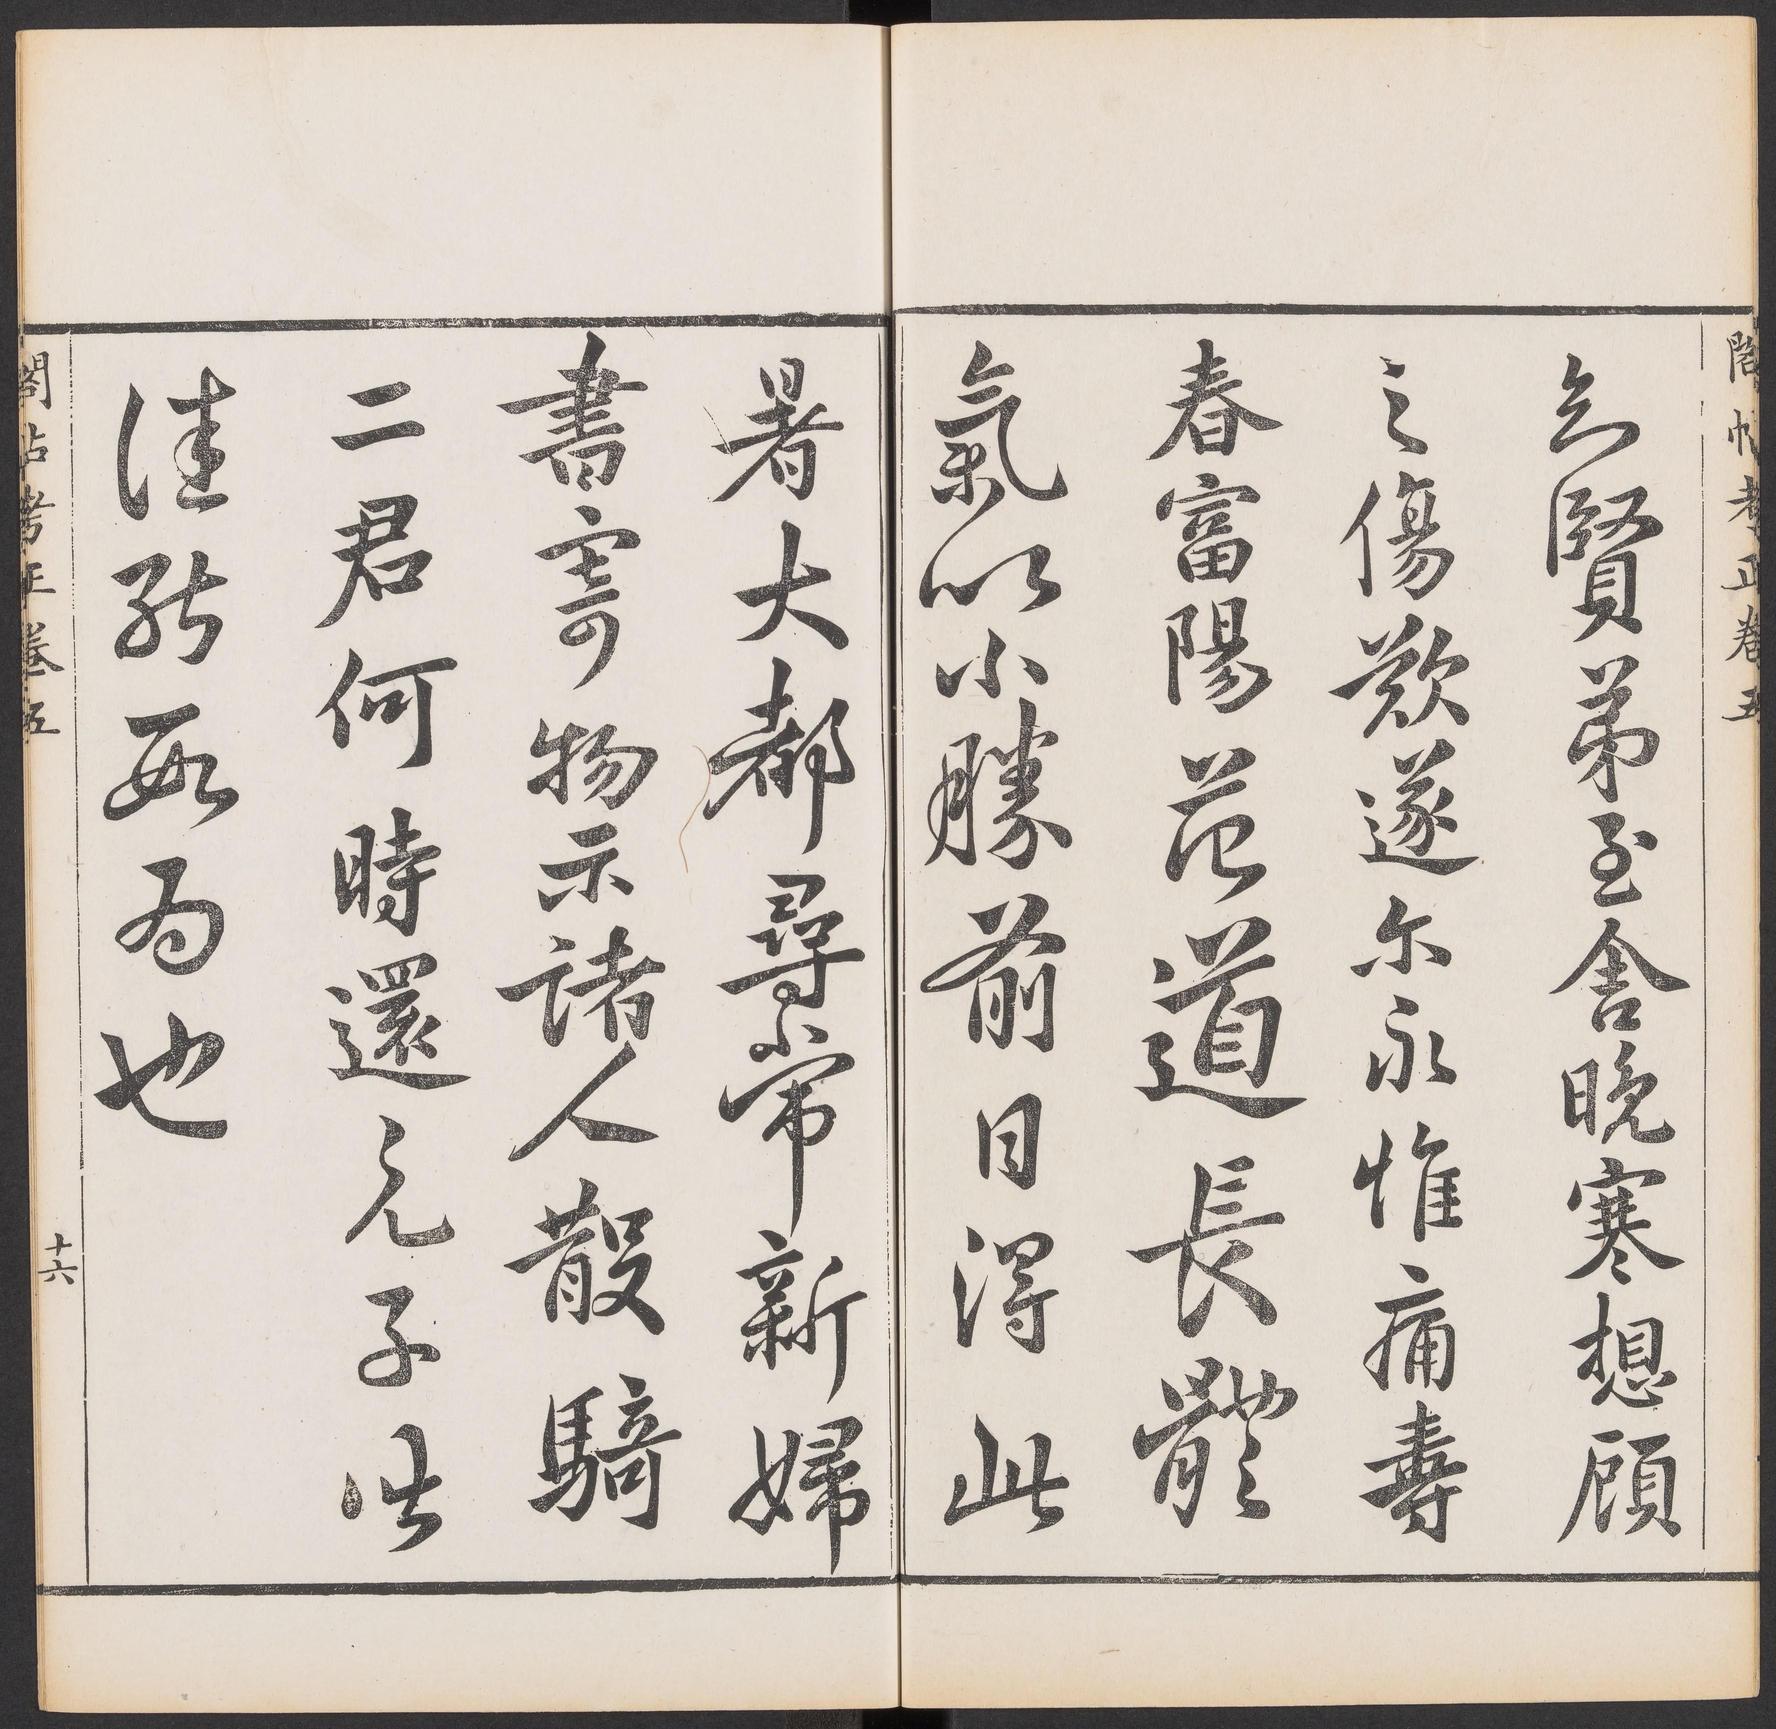 閣帖考正卷五
賢弟至舍晚寒想顧
之傷歎遂尓永惟痛壽
春富陽范道長體
氣以小勝前日得此
暑大都尋常新婦
書寄物示諸人散騎
二君何時還元子
佳能為也
閣帖考正卷五
十六